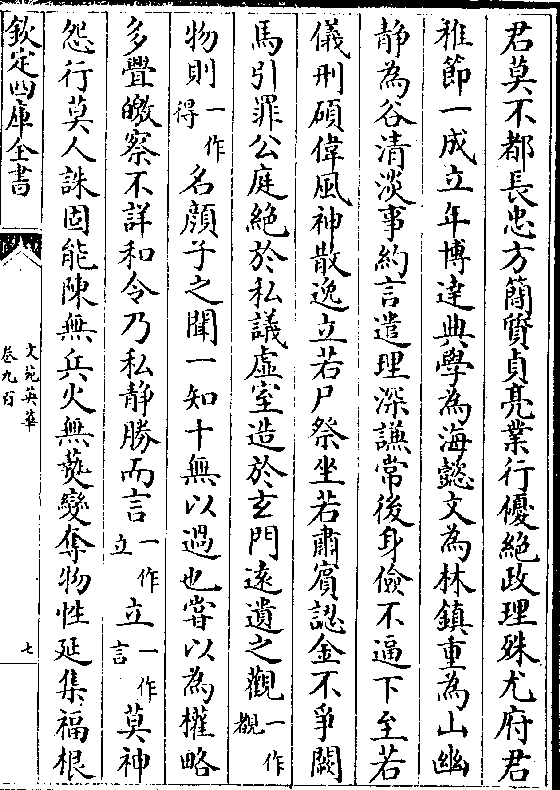 君莫不都長忠方簡質貞亮業行優絕政理殊尤府君
稚節一成立年博達典學為海懿文為林鎮重為山幽
静為谷清淡事約言遣理深謙常後身儉不逼下至若
儀刑碩偉風神散逸立若尸祭坐若肅賓認金不爭闕
馬引罪公庭絶於私議虚室造於玄門遠遺之觀一作覩
物則一作得名顔子之聞一知十無以過也嘗以為權略
多疊皦察不詳和令乃私静勝而言一作立立一作言莫神
怨行莫人誅固能陳無兵火無薎變奪物性延集福根
欽定四庫全書
文苑英華
卷九百
七